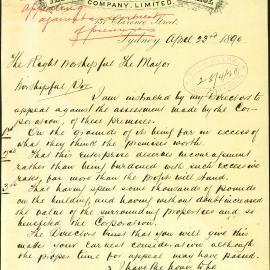 COMPANY, LIMITED.
appealing
against assessment
of premises
Street,
Sydney April 23rd 1890
The Right Worshipful The Mayor
Worshipful Sir
I am instructed by my Directors to
appeal against the assessment made by the Cor-
poration, of these premises.
1st On the grounds of its being far in excess of
what they think the premises worth.
That this enterprise deserves encouragement,
rather than being burdened with such excessive
rates, far more than the profit will stand.
That having spent some thousands of pounds
on the building, and having without doubt increased
the value of the surrounding properties and so
benefited the Corporation.
The Directors trust that you will give this
matter your earnest consideration although
the proper time for appeal may have passed.
I have the honor to be